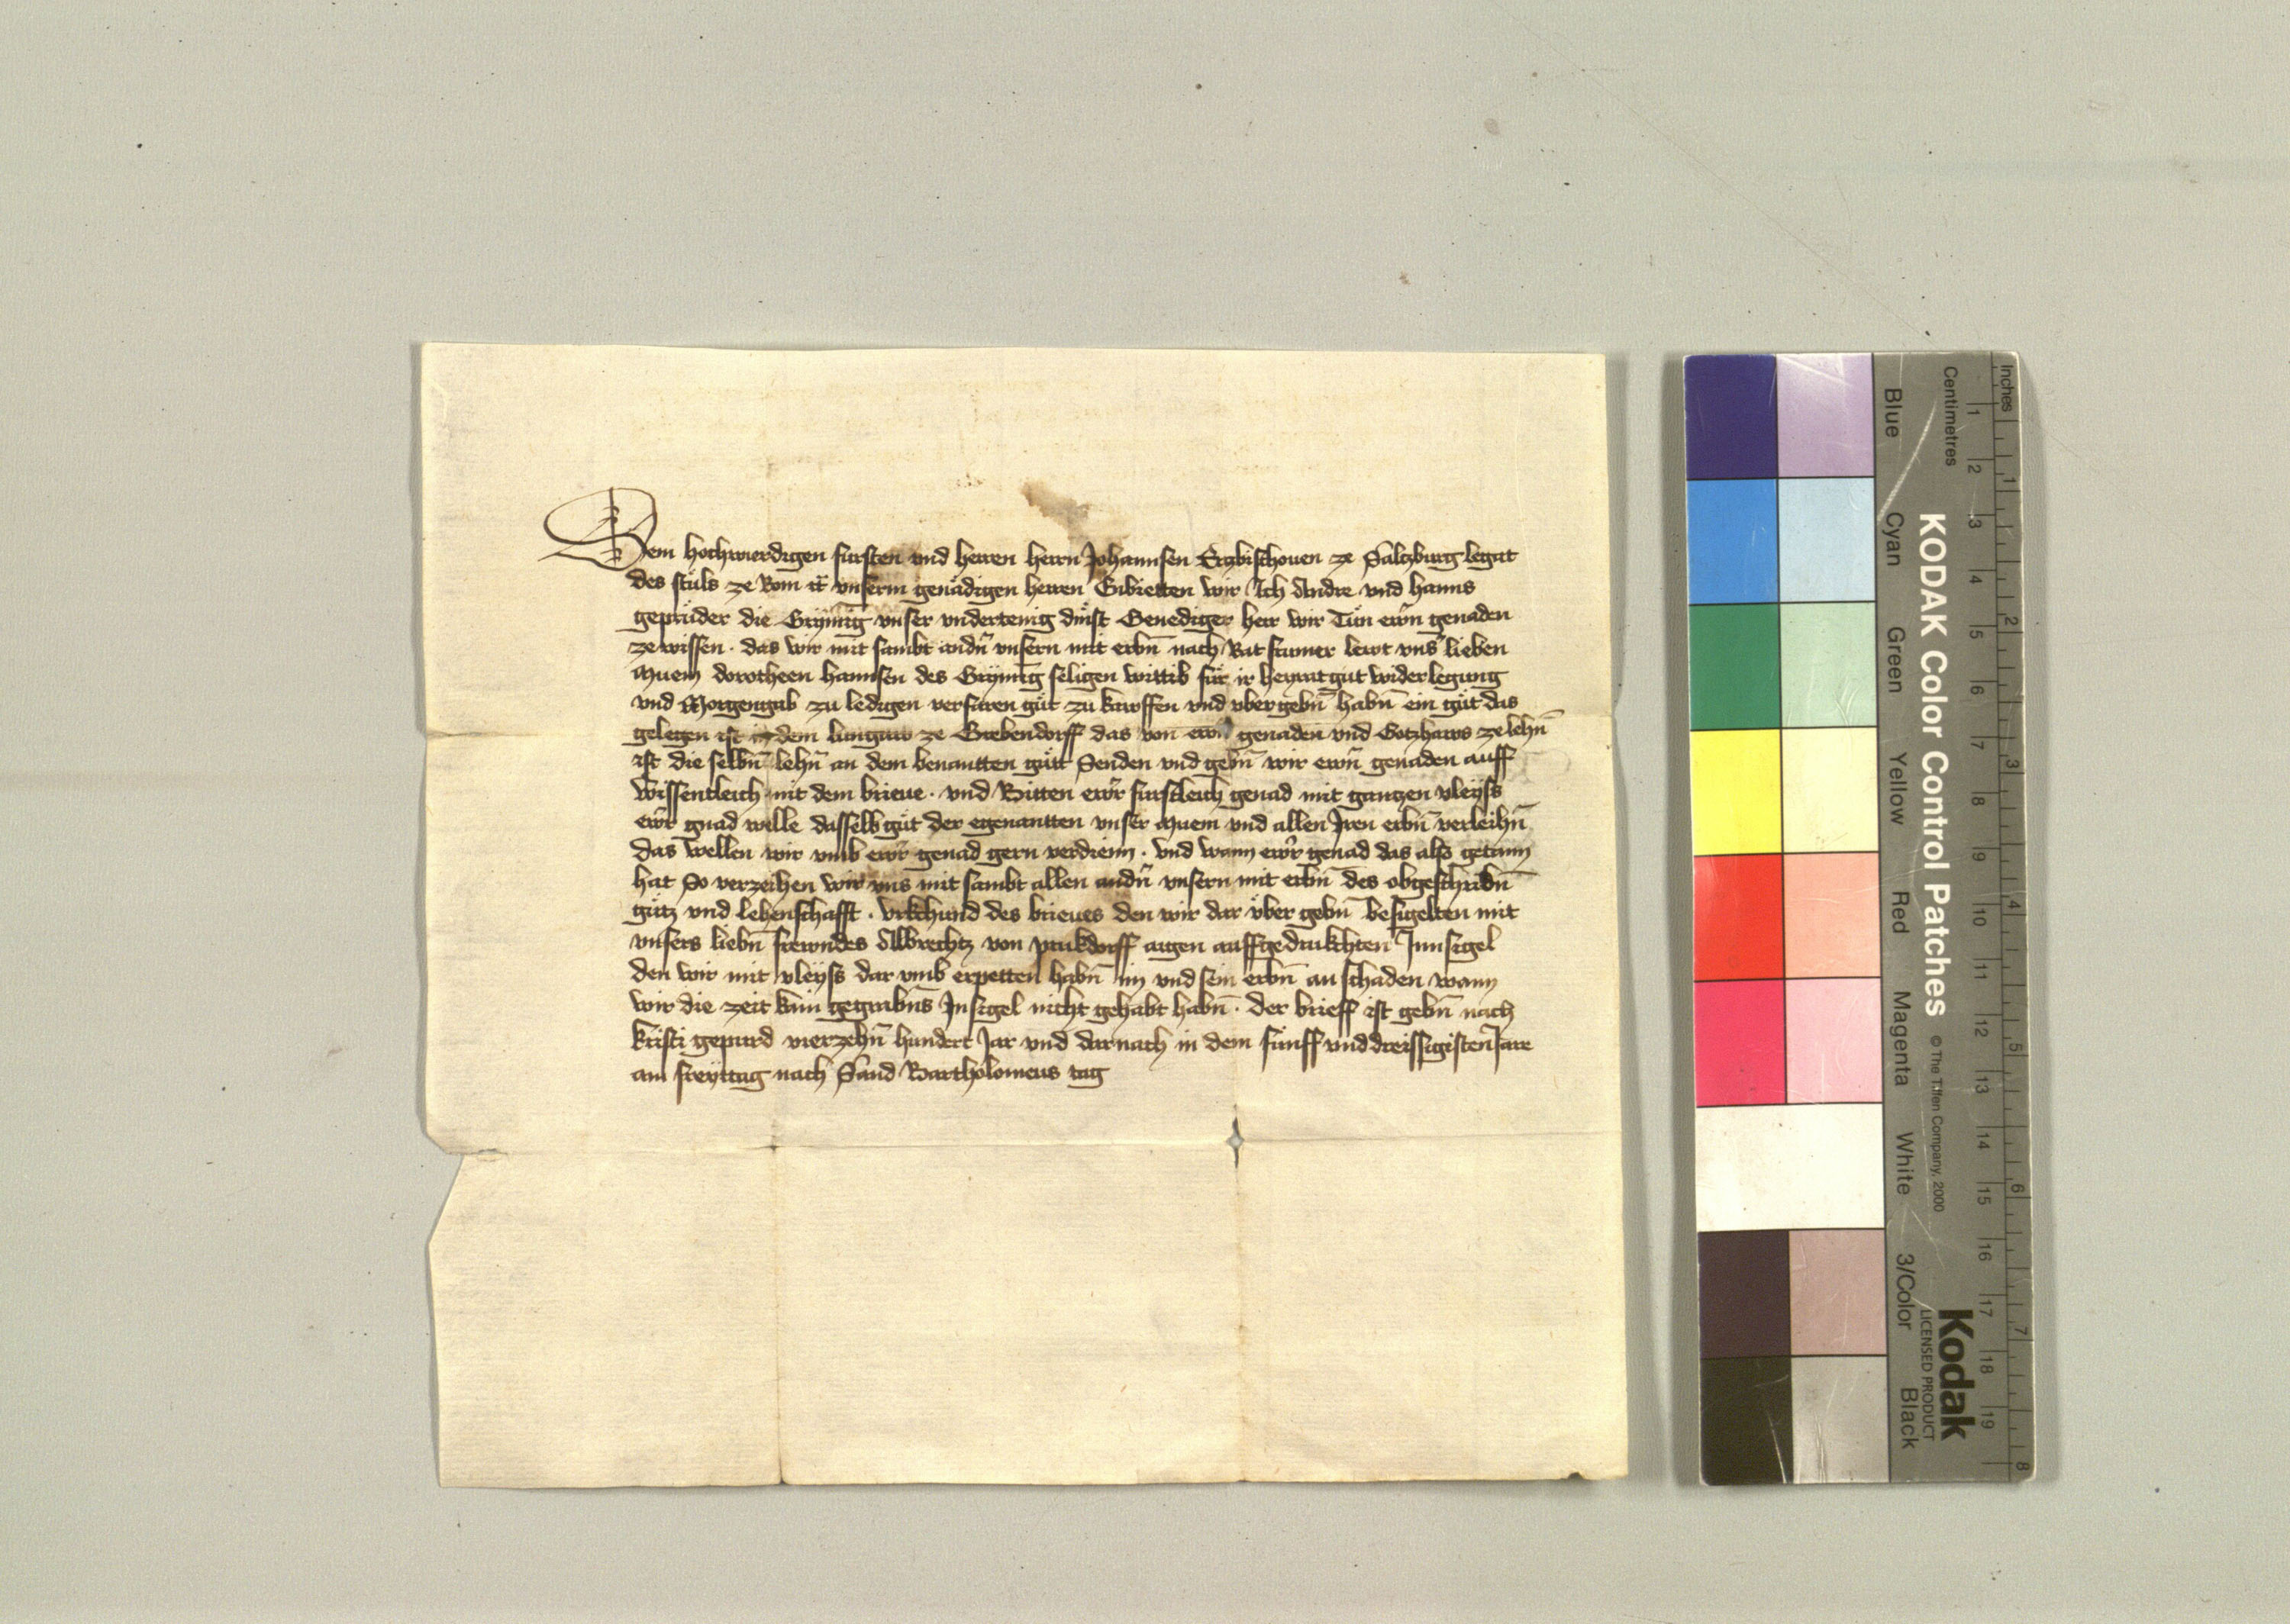 Dem hochwierdigen fursten vnd herren herrn Johannsen Ertzbischouen ze Saltzburg legat
des stůls ze Rom etc vnserm genådigen herren Enbietten wir Ich Andre vnd hanns
geprüder die Gryming vnser vndertenig dinst Genediger herr wir Tün ewrn genaden
ze wissen · das wir mit sambt andrn vnsern mit erbn nach Rat frumer lewt vnsr lieben
Muem dorotheen hannsen des Gryming seligen wittib für ir heyrat gut widerlegung
vnd Morgengab zu ledigen verfaren güt zu kauffen vnd vbergebn habn ein güt das
gelegen ist in dem lungaw ze Grebendorff das von ewrn genaden vnd Gotzhaws ze lehn
ist die selbn lehn an dem benantten gütt Senden vnd gebn wir ewrn genaden auff
wissentleich mit dem brieue · vnd Bitten ewr furstleich genad mit gantzen vleyss
ewr gnad welle dasselb gut der egenantten vnser Muem vnd allen Iren erbn verleihn
das wellen wir vmb ewr genad gern verdienn · vnd wann ewr genad das also getann
hat So verzeihen wir vns mit sambt allen andrn vnsern mit erbn des obgeschribn
gütz vnd lehenschafft · vrkchund des brieues den wir dar über gebn besigelten mit
vnsers liebn frewndes Albrechtz von prukdorff aigen auffgedrukchten Innsigel
den wir mit vleyss dar vmb erpetten habn im vnd sein erbn an schaden wann
wir die zeit kain gegrabns Insigel nicht gehabt habn · der brieff ist gebn nach
kristi gepurd vierzehn hundert Jar vnd darnach in dem fünff vnd dreissigisten Jare
am freyttag nach Sand Bartholomeus tag
Inches
Centimetres
KODAK Color Control Patches
© The Tiffen Company, 2000
Kodak
LICENSED PRODUCT
Blue
Cyan
Green
Yellow
Red
Magenta
White
3/Color
Black
1 2 3 4 5 6 7 8 9 10 11 12 13 14 15 16 17 18 19
1 2 3 4 5 6 7 8